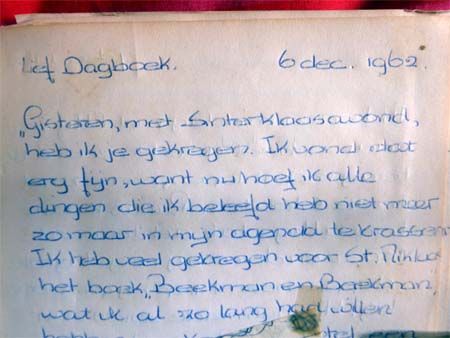 Lief Dagboek. 6 dec. 1962.
„Gisteren, met Sinterklaasavond,
heb ik je gekregen. Ik vond dat
erg fijn, want nu hoef ik alle
dingen die ik beleefd heb niet meer
zo maar in mijn agenda te krassen.
Ik heb veel gekregen voor St. Niklaas
het boek „Beekman en Beekman,
wat ik al zo lang had willen